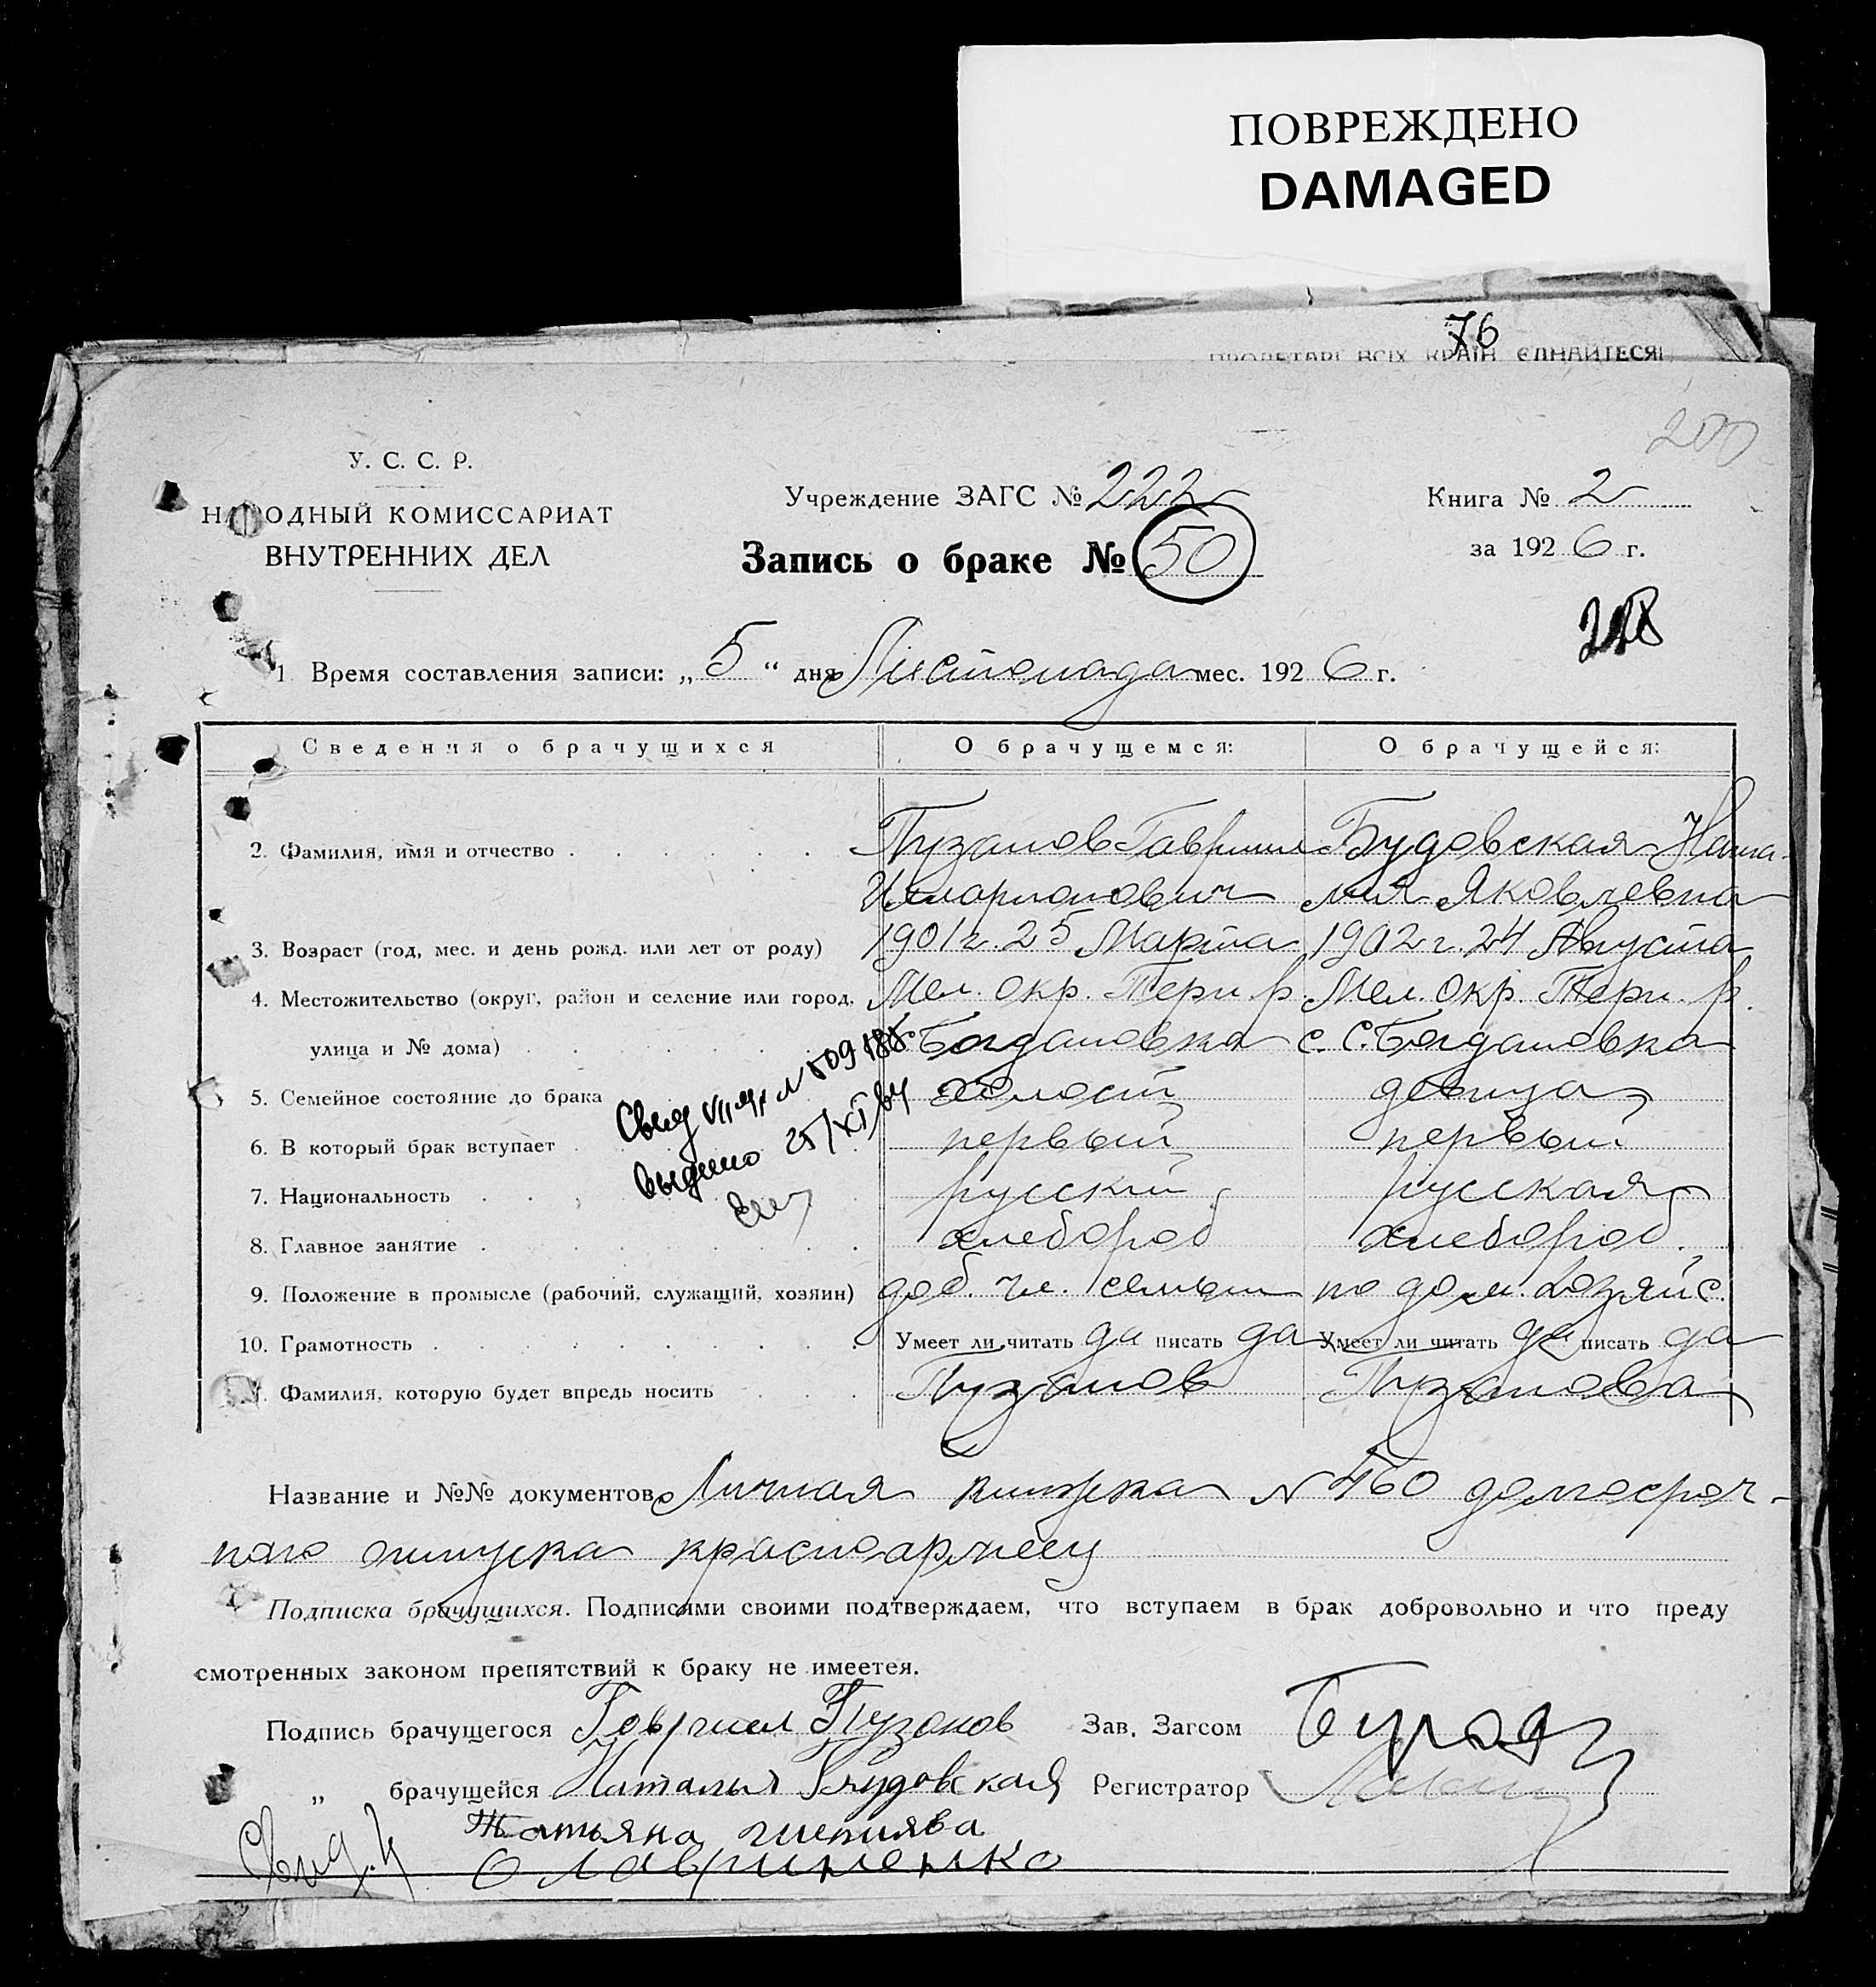 ПОВРЕЖДЕНО
DAMAGED
76
ПРОЛЕТАРІ ВСІХ КРАЇН ЄДНАЙТЕСЯ!
200
У. С. С. Р.
НАРОДНЫЙ КОМИССАРИАТ
ВНУТРЕННИХ ДЕЛ
Учреждение ЗАГС № 222
Запись о браке № 50
Книга № 2
за 1926 г.
1 Время составления записи: „5“ дня Листопада мес. 1926 г.
Сведения о брачущихся О брачущемся: О брачущейся:
2. Фамилия, имя и отчество Пузанов Гавриил Будовская Ната-
Илларионович лия Яковлевна
3. Возраст (год, мес. и день рожд. или лет от роду) 1901 г. 25 Марта 1902 г. 24 Августа
4. Местожительство (округ, район и селение или город, Мел. окр. Терп. р. Мел. окр. Терп. р.
улица и № дома) Богдановка с. Богдановка
5. Семейное состояние до брака холост девица
6. В который брак вступает первый первый
7. Национальность русский русская
8. Главное занятие хлебороб хлебороб.
9. Положение в промысле (рабочий, служащий, хозяин) доб. чл. семьи по дом. хозяйс.
10. Грамотность Умеет ли читать да писать да Умеет ли читать да писать да
Фамилия, которую будет впредь носить Пузанов Пузанова
выдано 25/XI
Название и №№ документов Личная книжка № 460 долгосроч-
ного отпуска красноармейц
Подписка брачущихся. Подписями своими подтверждаем, что вступаем в брак добровольно и что преду
смотренных законом препятствий к браку не имеетея.
Подпись брачущегося Говриил Пузонов Зав. Загсом
„ брачущейся Наталья Будовская Регистратор
Татьяна
Свид.
О Лавриненко